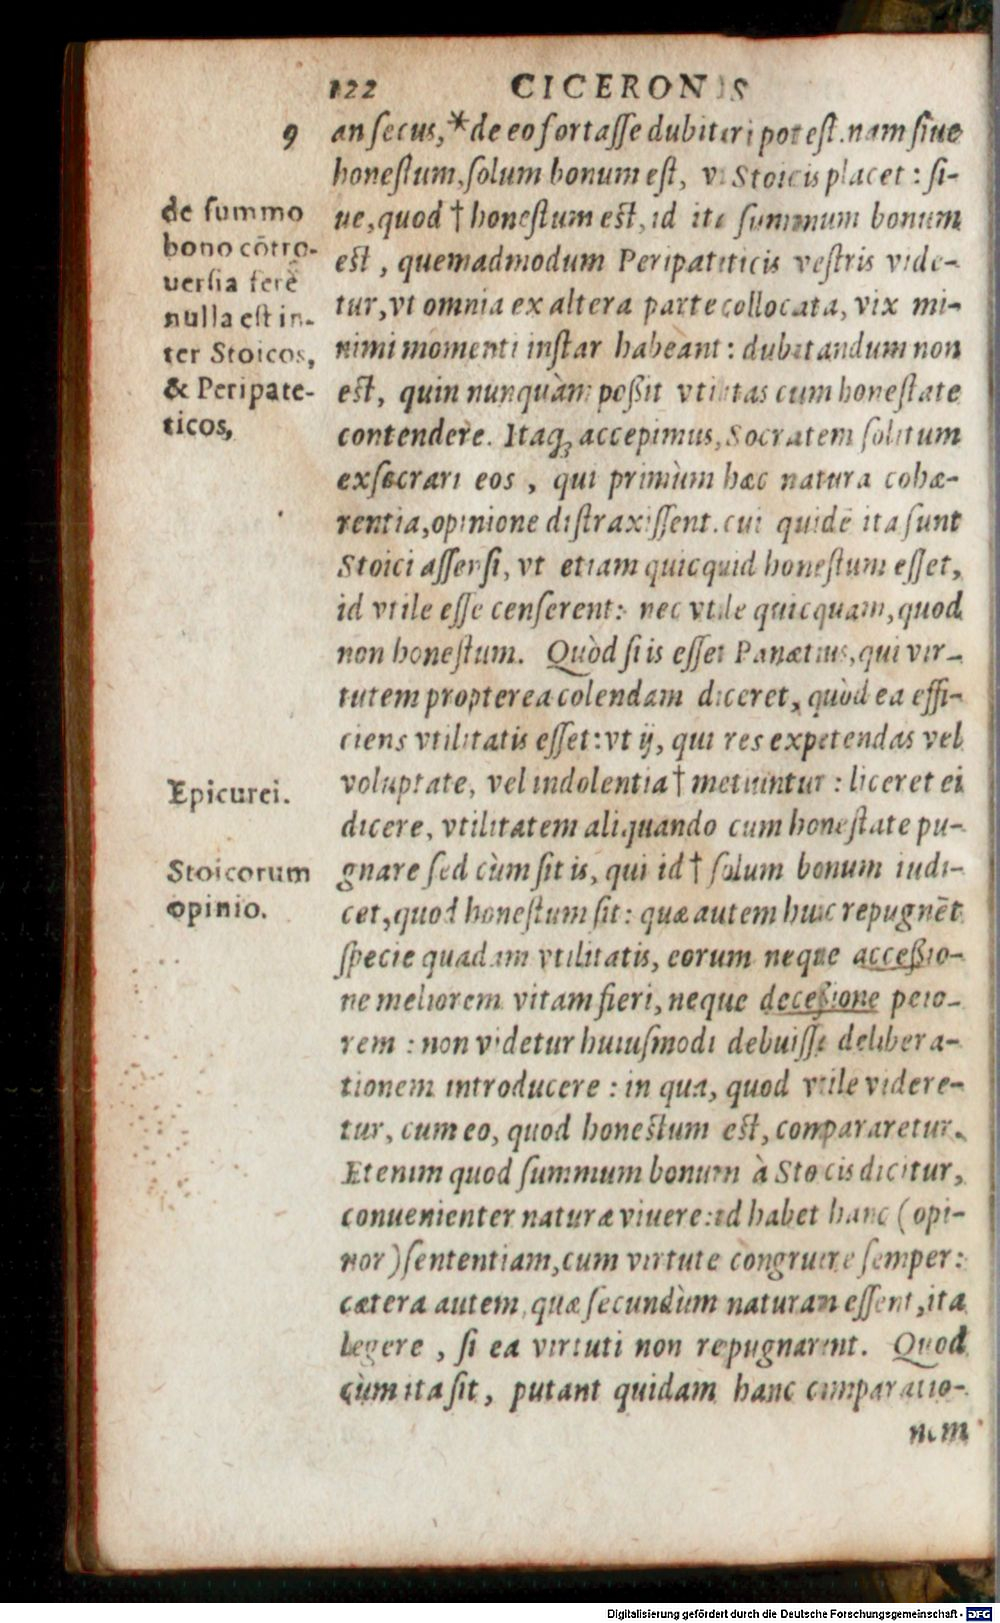 122 CICERONIS
9 an secus,* de eo fortasse dubitari potest. nam siue
honestum, solum bonum est, vt Stoicis placet : si-
ue, quod † honestum est, id ita summum bonum
est, quemadmodum Peripateticis vestris vide-
tur, vt omnia ex altera parte collocata, vix mi-
nimi momenti instar habeant : dubitandum non
est, quin nunquàm possit vtilitas cum honestate
contendere. Itaq; accepimus, Socratem solitum
exsecrari eos, qui primùm hæc natura cohæ-
rentia, opinione distraxissent. cui quidē ita sunt
Stoici assensi, vt etiam quicquid honestum esset,
id vtile esse censerent: nec vtile quicquam, quod
non honestum. Quòd si is esset Panætius, qui vir-
tutem propterea colendam diceret, quòd ea effi-
ciens vtilitatis esset: vt ij, qui res expetendas vel
voluptate, vel indolentia † metiuntur : liceret ei
dicere, vtilitatem aliquando cum honestate pu-
gnare sed cùm sit is, qui id † solum bonum iudi-
cet, quod honestum sit: quæ autem huic repugnēt
specie quadam vtilitatis, eorum neque accessio-
ne meliorem vitam fieri, neque decessione peio-
rem : non videtur huiusmodi debuisse delibera-
tionem introducere : in qua, quod vtile videre-
tur, cum eo, quod honestum est, compararetur.
Etenim quod summum bonum à Stoicis dicitur,
conuenienter naturæ viuere: id habet hanc (opi-
nor) sententiam, cum virtute congruere semper:
cætera autem, quæ secundùm naturam essent, ita
legere, si ea virtuti non repugnarent. Quod
cùm ita sit, putant quidam hanc comparatio-
nem
de summo
bono cōtro-
uersia ferè
nulla est in-
ter Stoicos,
& Peripate-
ticos,
Epicurei.
Stoicorum
opinio.
Digitalisierung gefördert durch die Deutsche Forschungsgemeinschaft - DFG